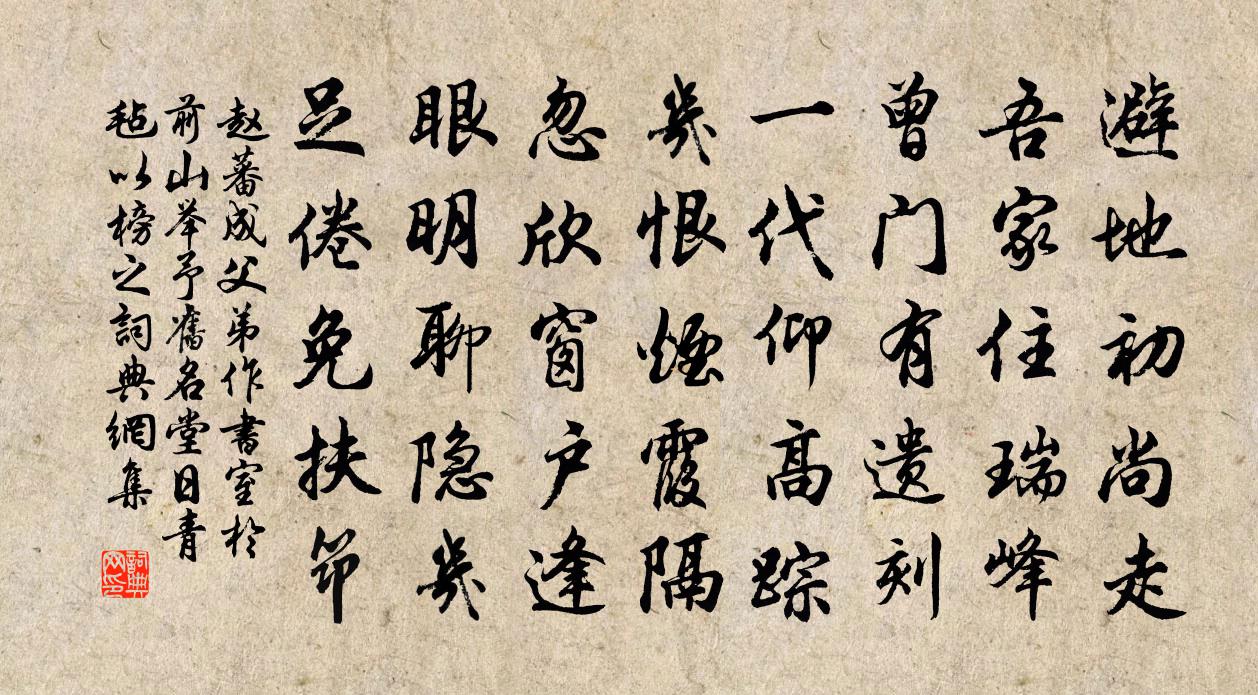 避地初尚走
吾家住瑞峰
曾门有遗刻
一代仰高踪
幾恨煙霞隔
忽欣窗户逢
眼明聊隐幾
足倦免扶筇
赵蕃成父弟作書室於
前山举予舊名堂日青
毡以榜之詞典網集
詞典网印